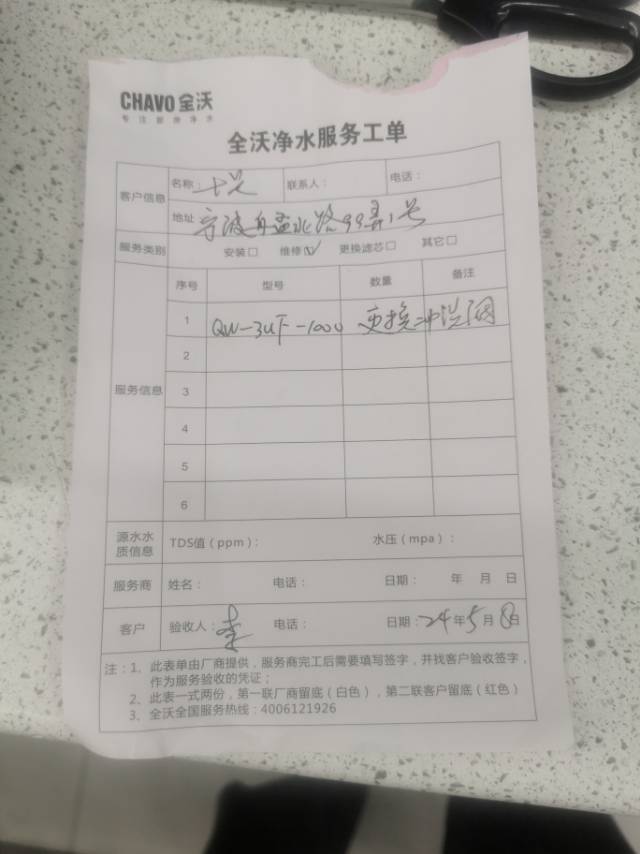 CHAVO 全沃
专注厨房净水
全沃净水服务工单
客户信息 名称： 联系人： 电话：
地址 宁波 路99弄1号
服务类别 安装□ 维修☑ 更换滤芯□ 其它□
服务信息 序号 型号 数量 备注
1 QW-3UF-1000 更换冲洗阀
2
3
4
5
6
源水水质信息 TDS值（ppm）： 水压（mpa）：
服务商 姓名： 电话： 日期： 年 月 日
客户 验收人：李 电话： 日期：24年5月8日
注：1、此表单由厂商提供，服务商完工后需要填写签字，并找客户验收签字，
作为服务验收的凭证；
2、此表一式两份，第一联厂商留底（白色），第二联客户留底（红色）
3、全沃全国服务热线：4006121926